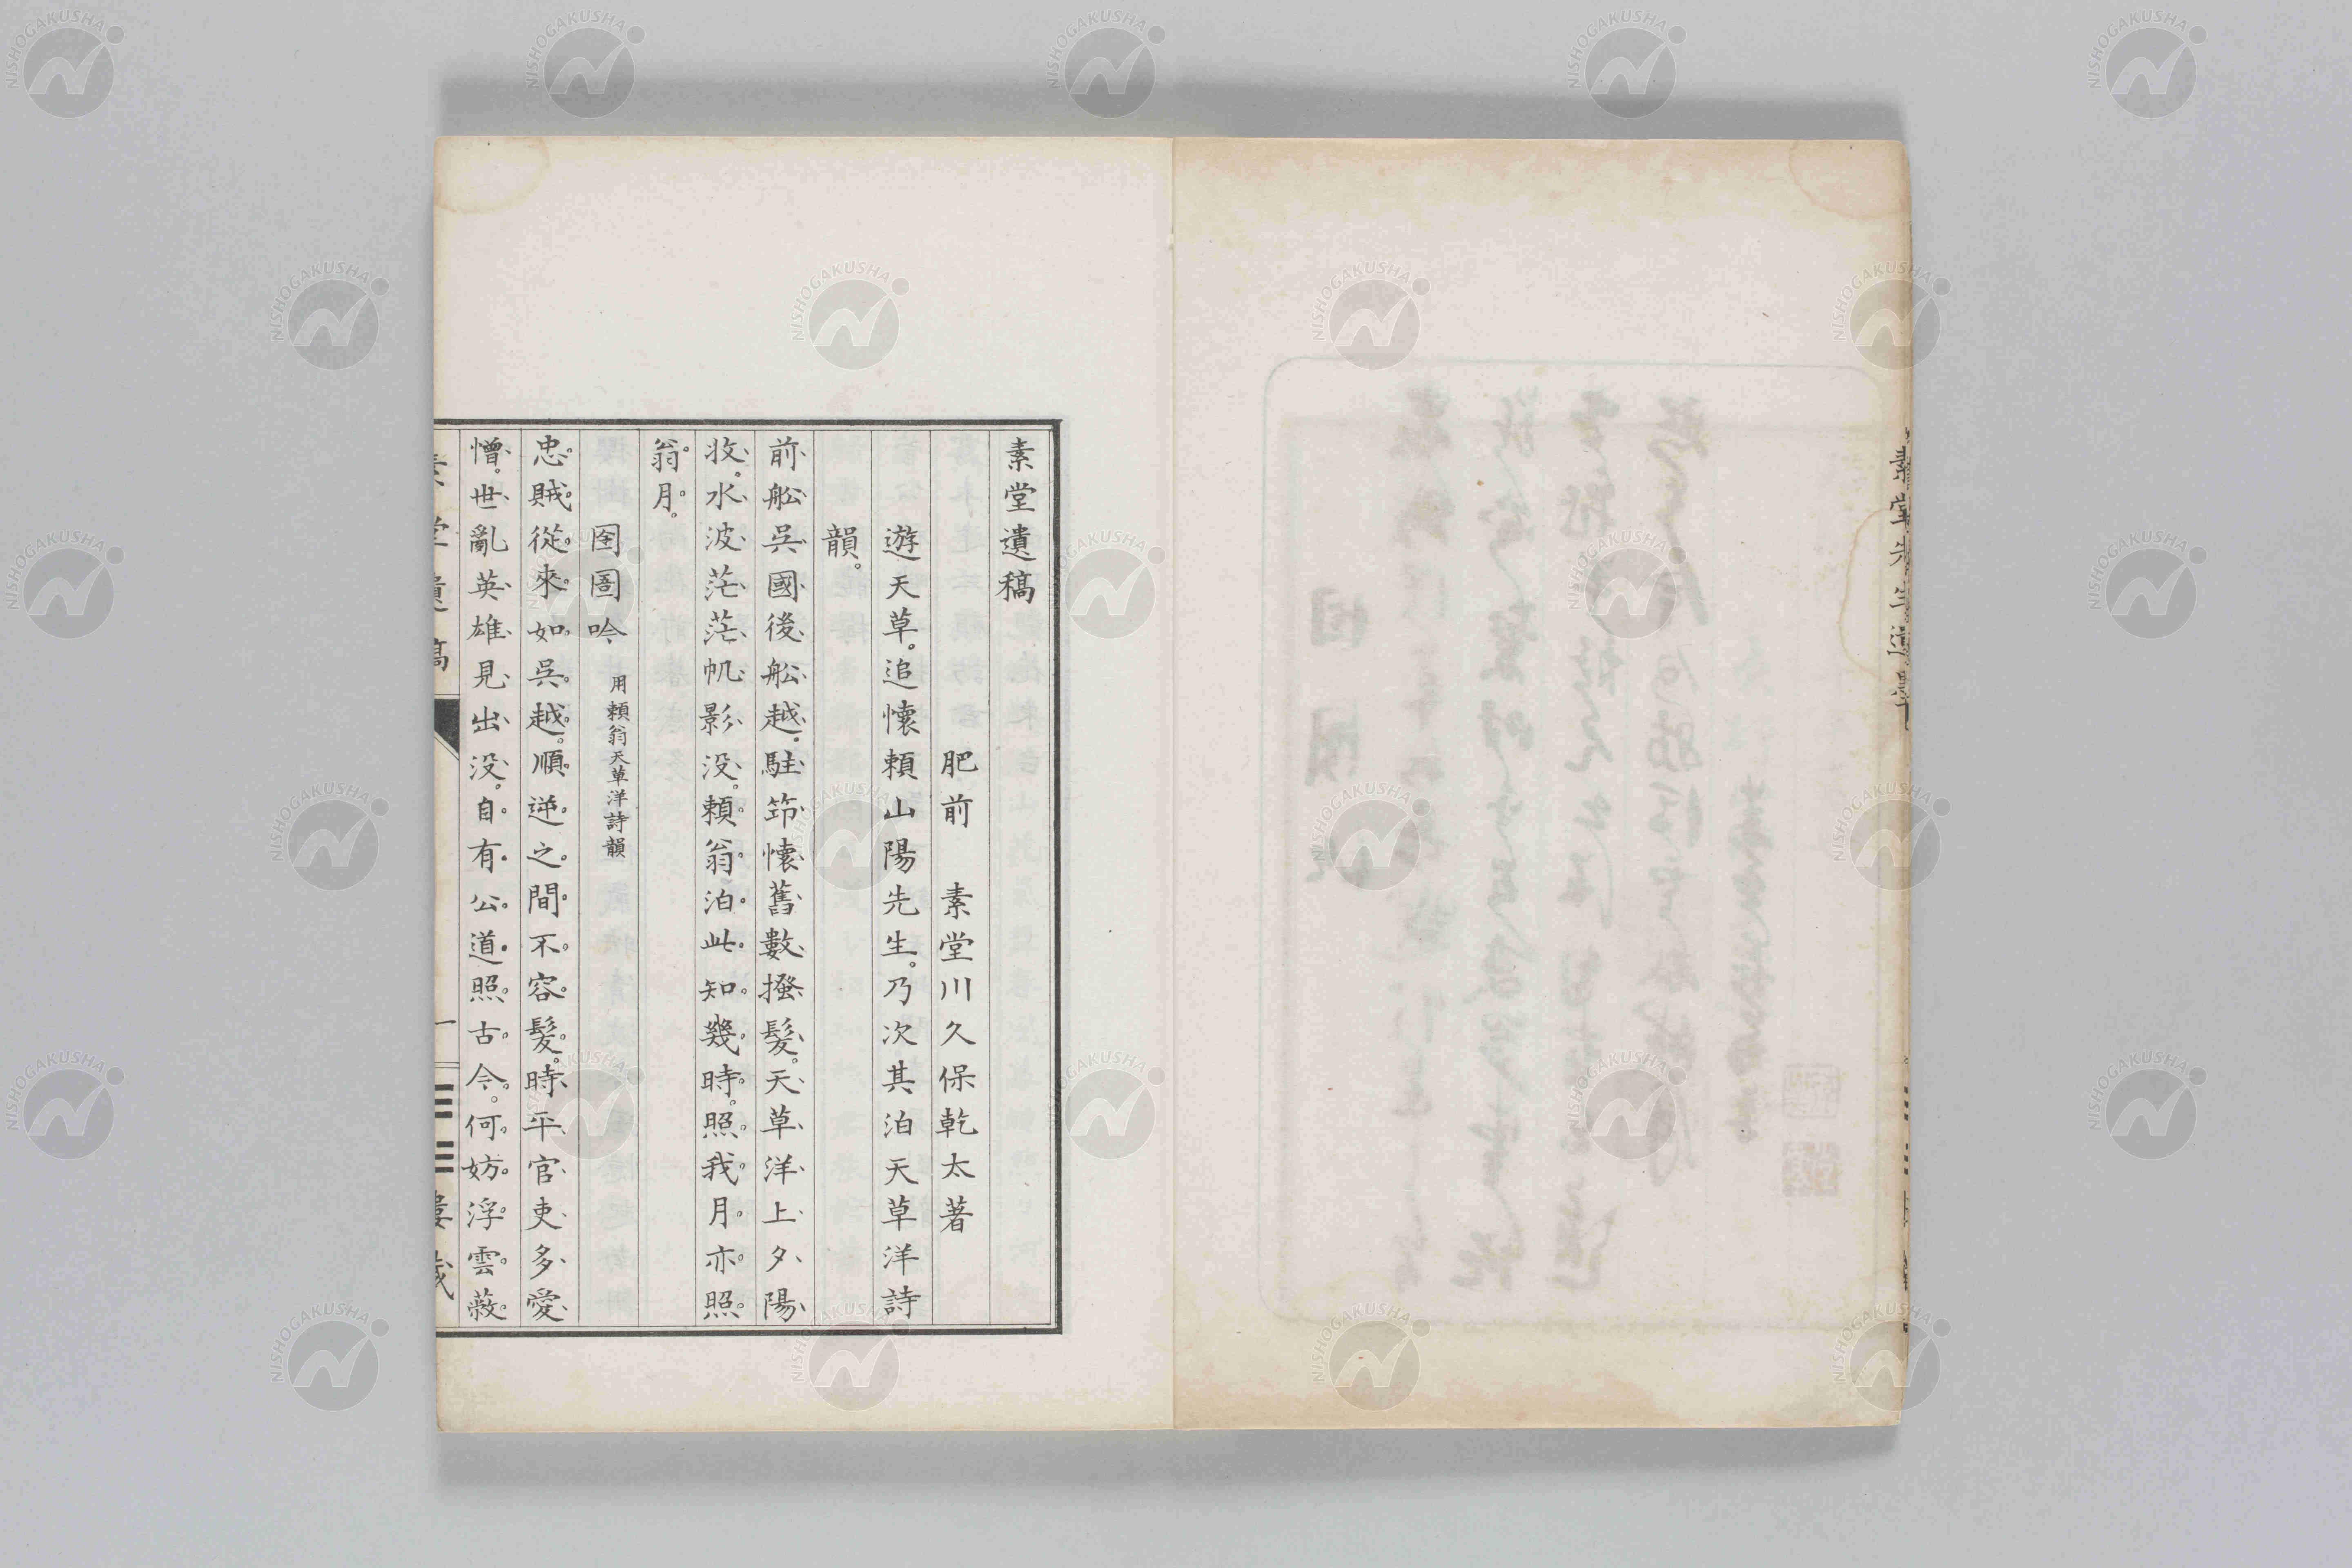 素堂先生遺墨
素堂遺稿
肥前　素堂川久保乾太著
遊天草。追懷賴山陽先生。乃次其泊天草洋詩
韻。
前船吳國後船越。駐筇懷舊數搔髮。天草洋上夕陽
收。水波茫茫帆影沒。賴翁泊此知幾時。照我月亦照
翁月。
囹圄吟　用賴翁天草洋詩韻
忠賊從來如吳越。順逆之間不容髮。時平官吏多愛
憎。世亂英雄見出沒。自有公道照古今。何妨浮雲蔽
素堂遺稿
一
NISHOGAKUSHA